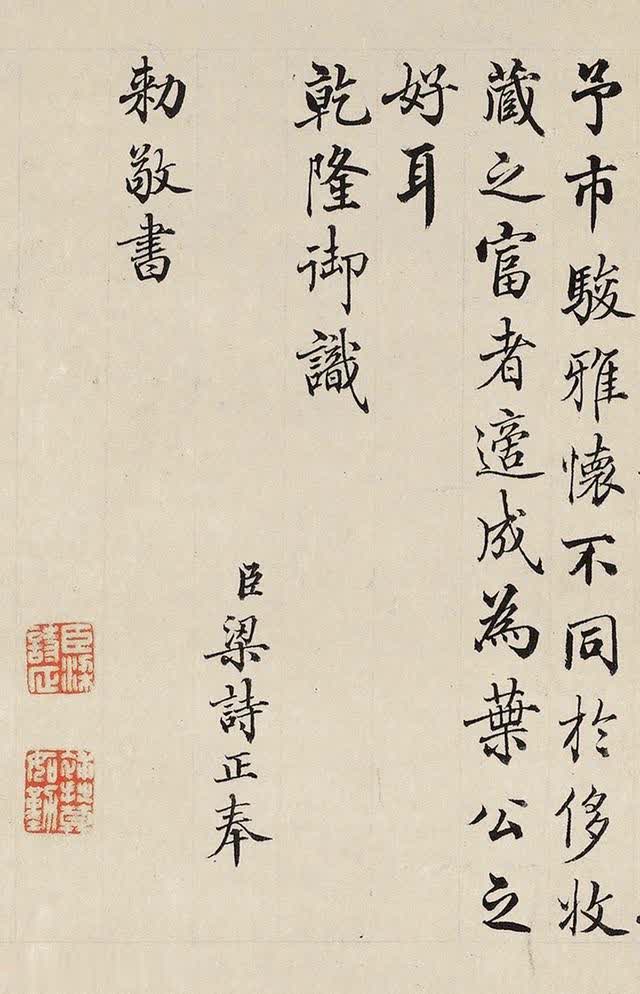 予市駿雅懷不同於侈收
藏之富者適成為葉公之
好耳
乾隆御識
臣梁詩正奉
勅敬書
臣梁詩正